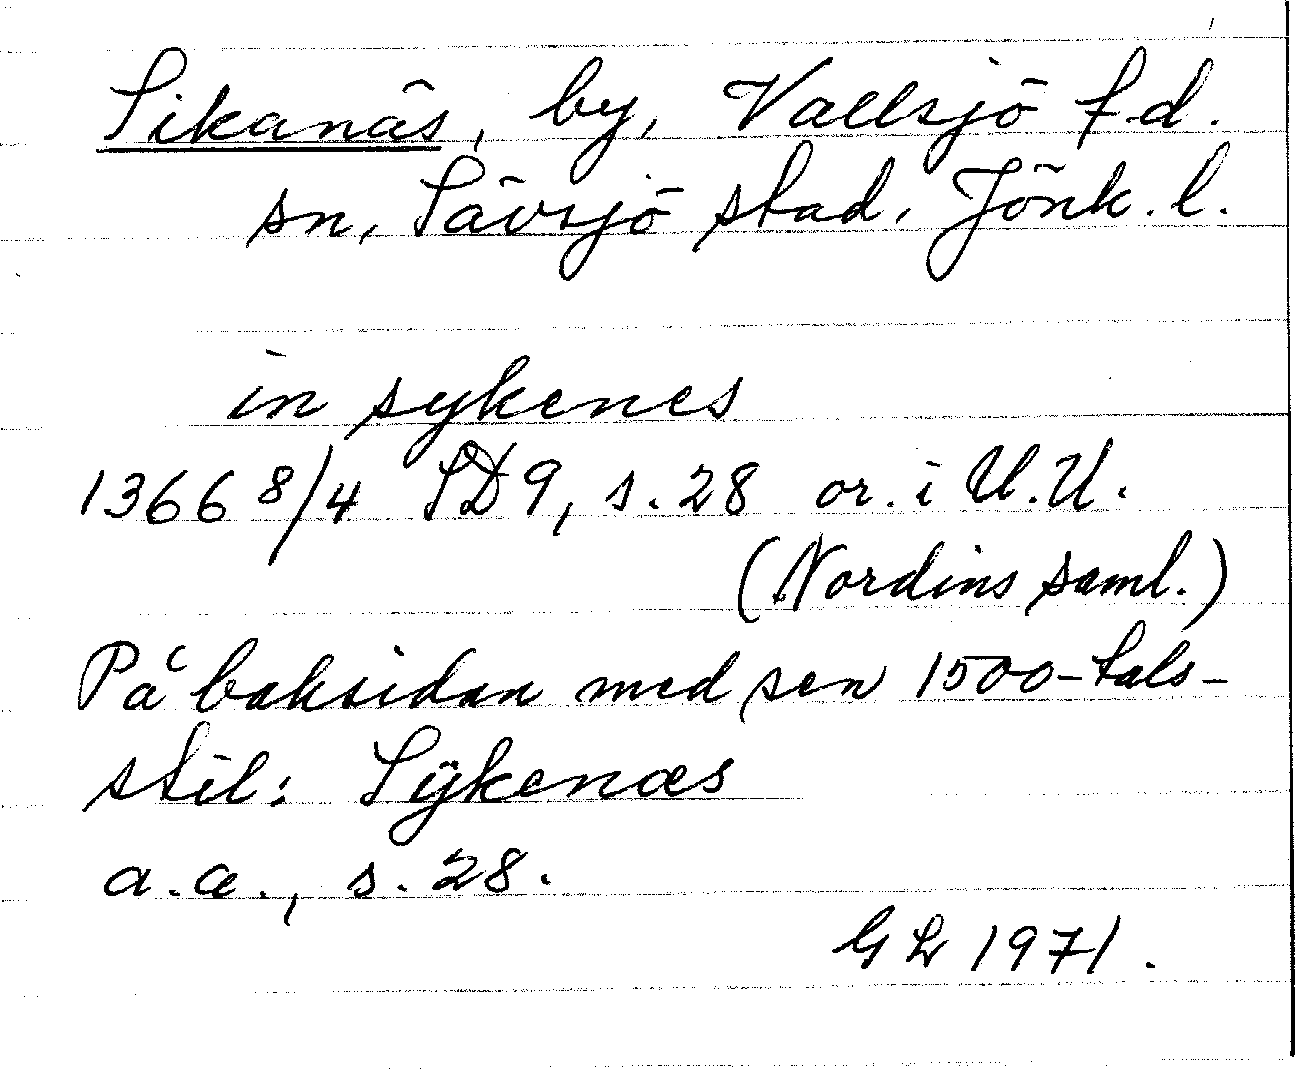 Sikanäs, by, Vallsjö f.d.
sn, Sävsjö stad, Jönk. l.
in sykenes
1366 8/4 SD 9, s. 28 or. i U.U.
(Nordins saml.)
På baksidan med sen 1500-tals-
stil: Sÿkenæs
a.a., s. 28.
GL 1971.